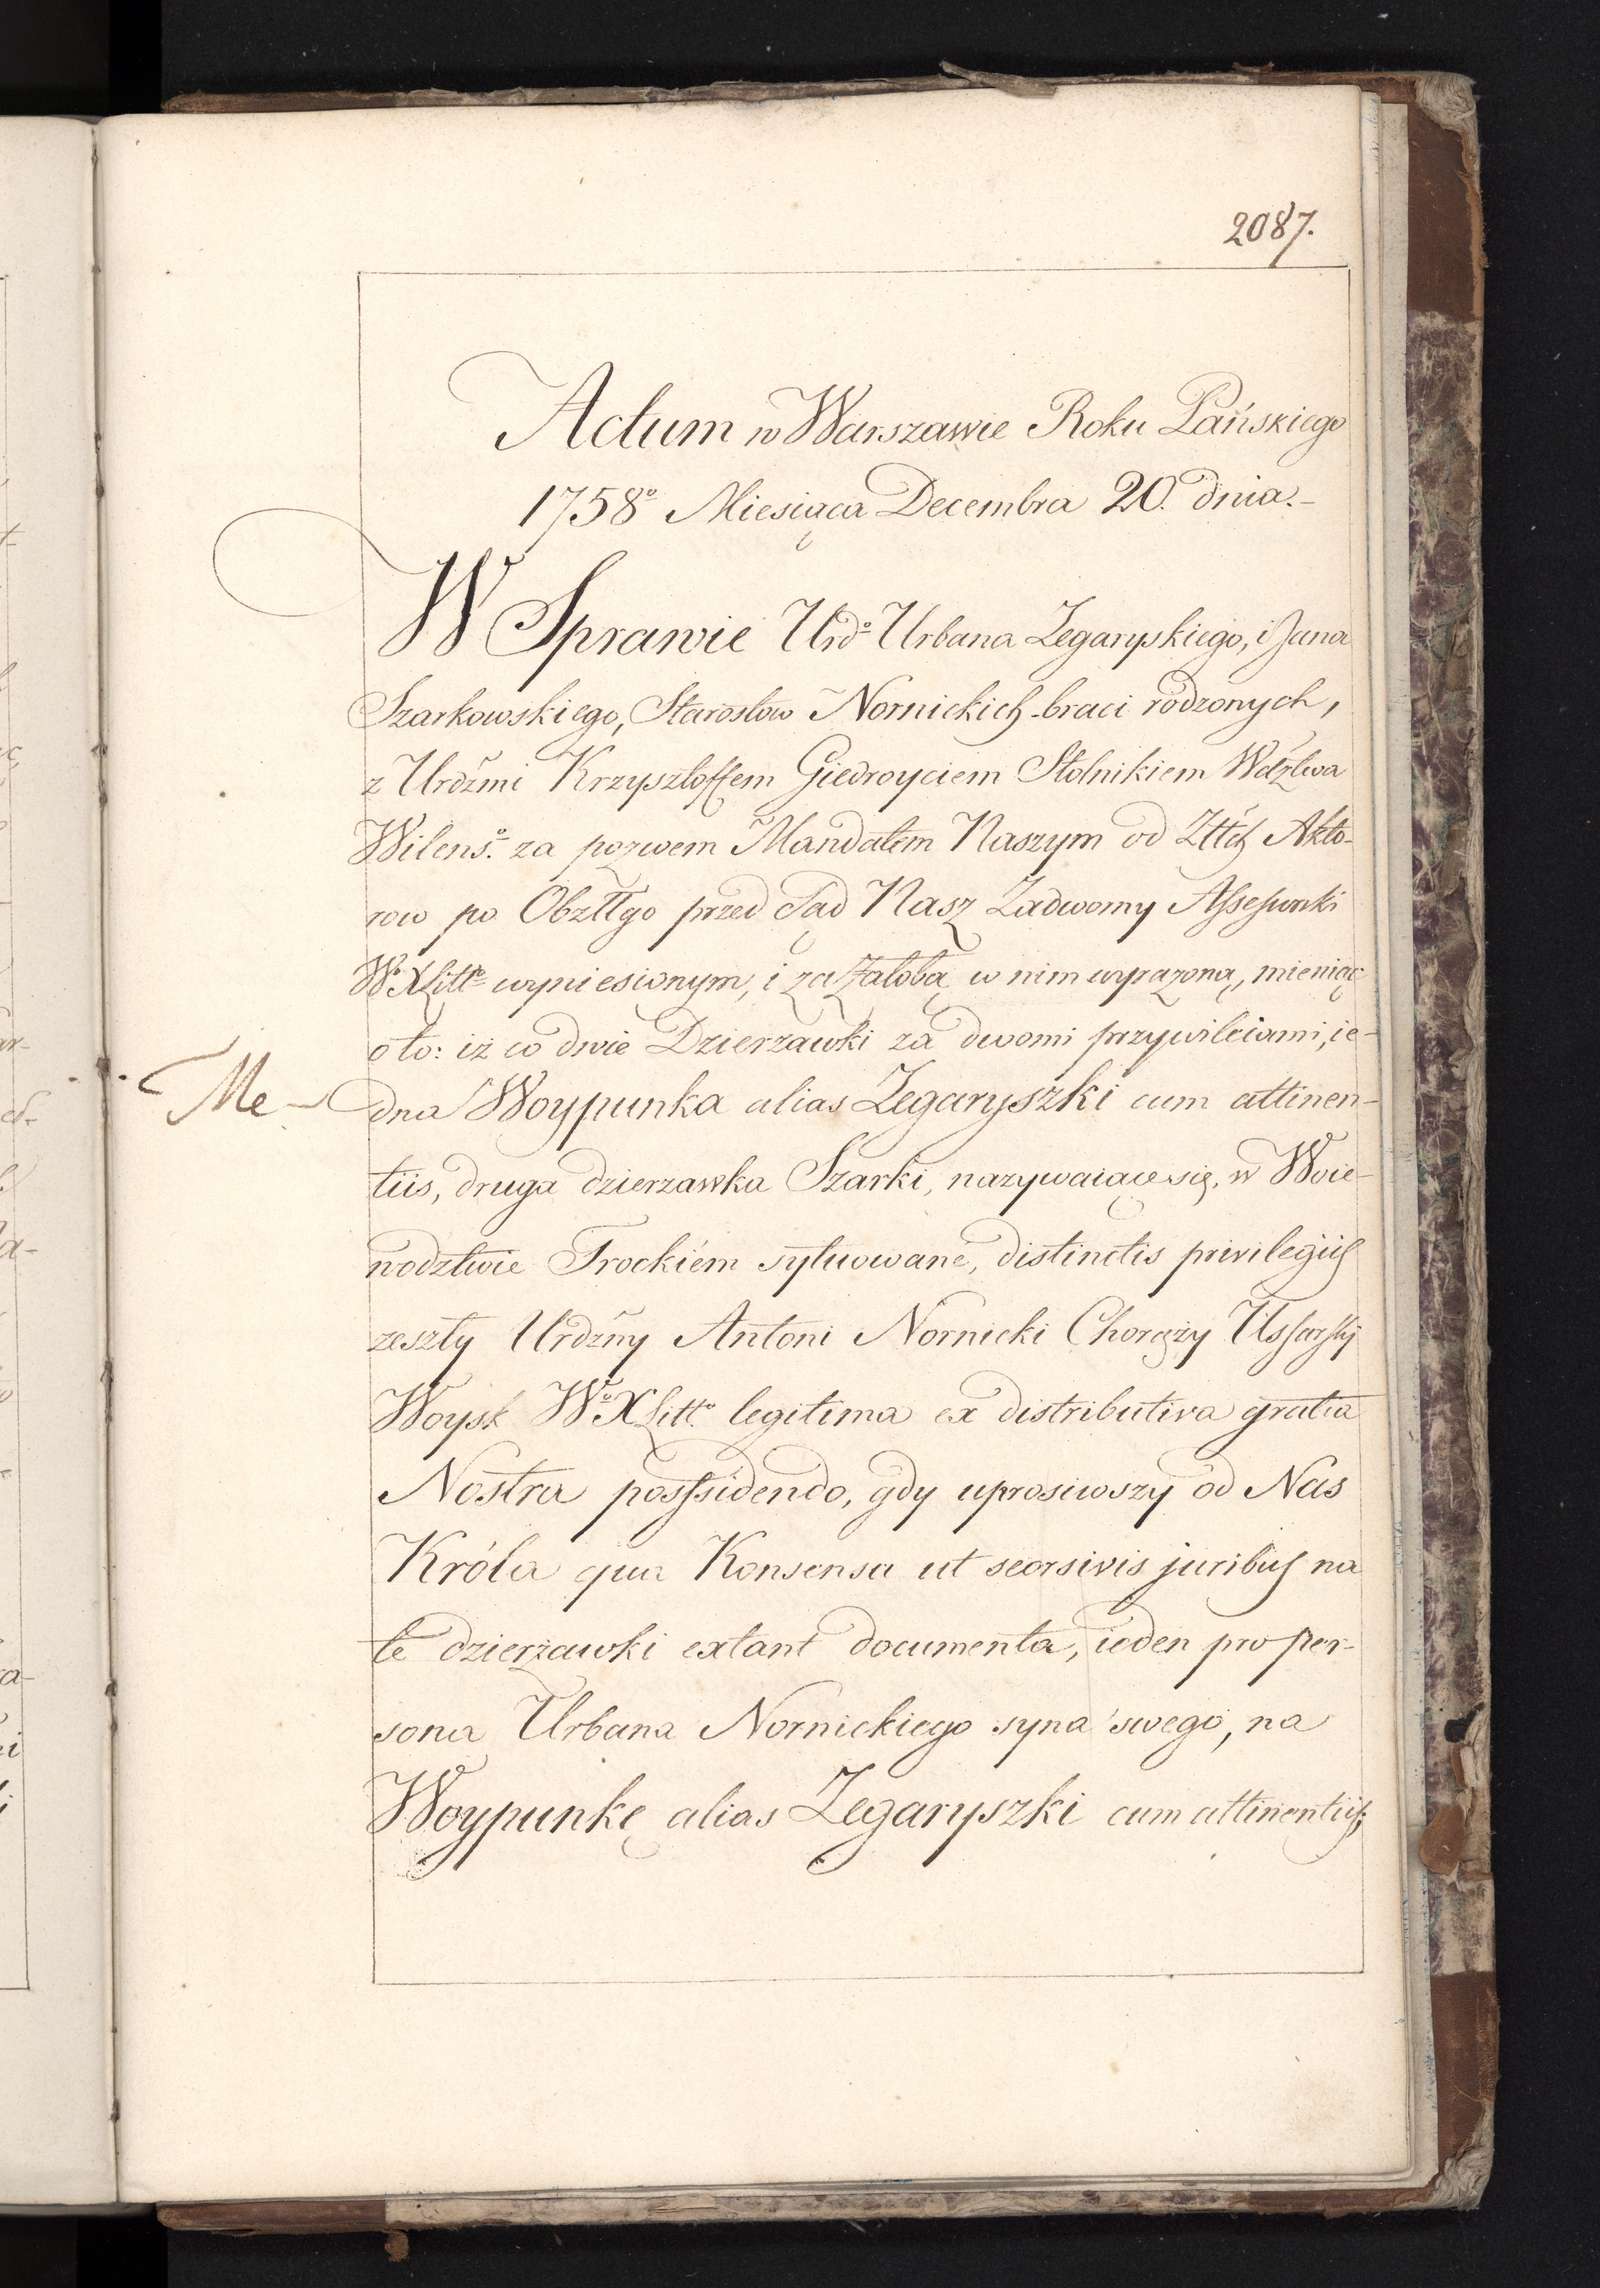 2087.
Actum w Warszawie Roku Pańskiego
1758º Miesiąca Decembra 20. dnia.-
W Sprawie Urdº Urbana Zegaryskiego, i Jana
Szarkowskiego, Starostow Nornickich braci rodzonych,
z Urdźmi Krzysztoffem Giedroyciem Stolnikiem Wdźtwa
Wilens.º za pozwem Mandatem Naszym od Żłłch Akto-
row po Obżłłgo przed Sąd Nasz Zadworny Assessorski
Wº X Littº wyniesionym, i za Załobą w nim wyrażoną, mieniąc
o to: iż co dwie Dzierzawki za dwomi przywileiami, ie-
Me-
dna Woypunka alias Zegaryszki cum attinen-
tiis, druga dzierzawka Szarki, nazywaiące się, w Woie-
wodztwie Trockiém sytuowane, distinctis privilegiis
zeszły Urdźny Antoni Nornicki Chorąży Ussarski
Woysk Wº X Litt.º legitima ex distributiva gratia
Nostra possidendo, gdy uprosiwszy od Nas
Króla qua Konsensa ut seorsivis juribus na
te dzierżawki extant documenta, ieden pro per-
sona Urbana Nornickiego syna swego, na
Woypunkę alias Zegaryszki cum attinentiis,